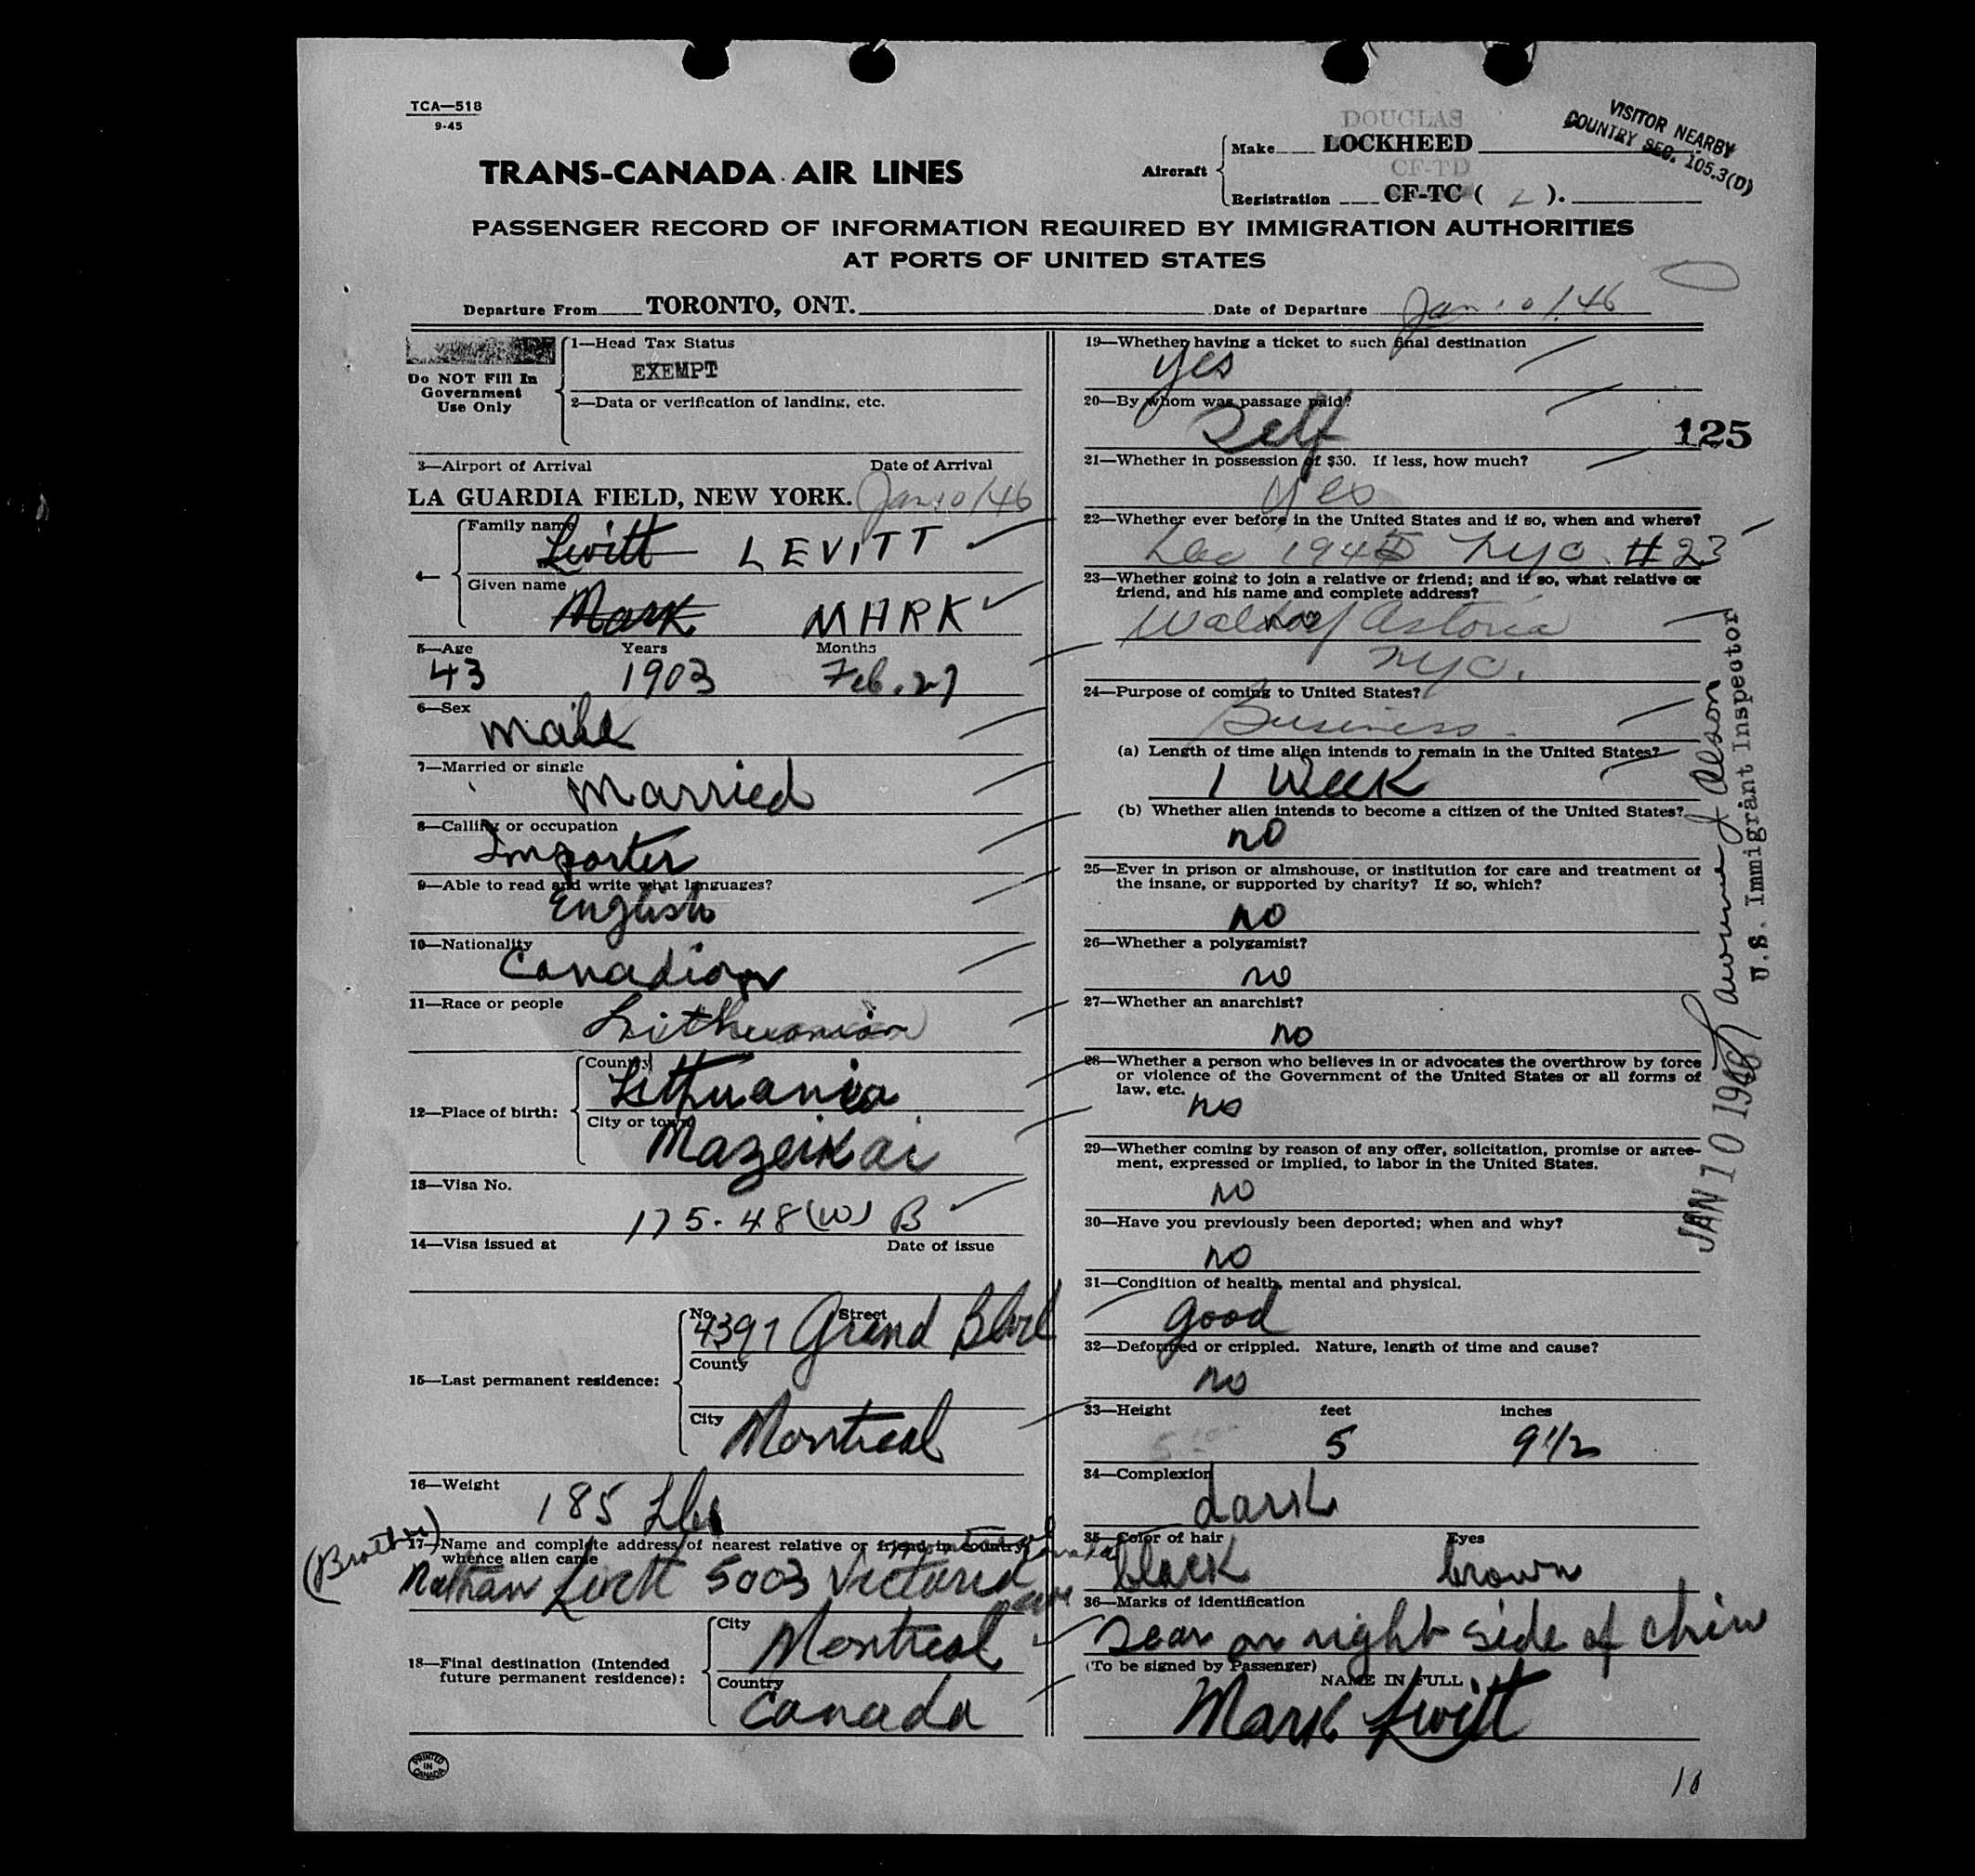 TCA—518
9-45
VISITOR NEARBY
COUNTRY SEC. 105.3(D)
DOUGLAS
Aircraft Make LOCKHEED
CF-TD
Registration CF-TC ( 2 ).
TRANS-CANADA AIR LINES
PASSENGER RECORD OF INFORMATION REQUIRED BY IMMIGRATION AUTHORITIES
AT PORTS OF UNITED STATES
Departure From TORONTO, ONT. Date of Departure Jan 10/46
Do NOT Fill In
Government
Use Only
1—Head Tax Status
EXEMPT
2—Data or verification of landing, etc.
3—Airport of Arrival Date of Arrival
LA GUARDIA FIELD, NEW YORK. Jan 10/46
4— Family name
Levitt LEVITT
Given name
Mark MARK
5—Age Years Months
43 1903 Feb. 27
6—Sex
male
7—Married or single
Married
8—Calling or occupation
Importer
9—Able to read and write what languages?
English
10—Nationality
Canadian
11—Race or people
Lithuanian
12—Place of birth:
Country
Lithuania
City or town
Mazeikai
13—Visa No.
175-48(10) B
14—Visa issued at Date of issue
15—Last permanent residence:
No. Street
4397 Grand Blvd
County
City
Montreal
16—Weight
185 Lbs
(Brother)
17—Name and complete address of nearest relative or friend in country
whence alien came
Nathan Levitt 5003 Victoria
ave
18—Final destination (Intended
future permanent residence):
City
Montreal
Country
Canada
PRINTED
IN
CANADA
19—Whether having a ticket to such final destination
yes
20—By whom was passage paid?
Self
125
21—Whether in possession of $50. If less, how much?
yes
22—Whether ever before in the United States and if so, when and where?
Dec 1945 NYC #23
23—Whether going to join a relative or friend; and if so, what relative or
friend, and his name and complete address?
no
Waldorf Astoria
NYC.
24—Purpose of coming to United States?
Business.
(a) Length of time alien intends to remain in the United States?
1 Week
(b) Whether alien intends to become a citizen of the United States?
no
25—Ever in prison or almshouse, or institution for care and treatment of
the insane, or supported by charity? If so, which?
no
26—Whether a polygamist?
no
27—Whether an anarchist?
no
28—Whether a person who believes in or advocates the overthrow by force
or violence of the Government of the United States or all forms of
law, etc.
no
29—Whether coming by reason of any offer, solicitation, promise or agree-
ment, expressed or implied, to labor in the United States.
no
30—Have you previously been deported; when and why?
no
31—Condition of health, mental and physical.
good
32—Deformed or crippled. Nature, length of time and cause?
no
33—Height feet inches
5 9 1/2
34—Complexion
dark
35—Color of hair Eyes
black brown
36—Marks of identification
Scar on right side of chin
(To be signed by Passenger)
NAME IN FULL
Mark Levitt
U.S. Immigrant Inspector
JAN 10 1946